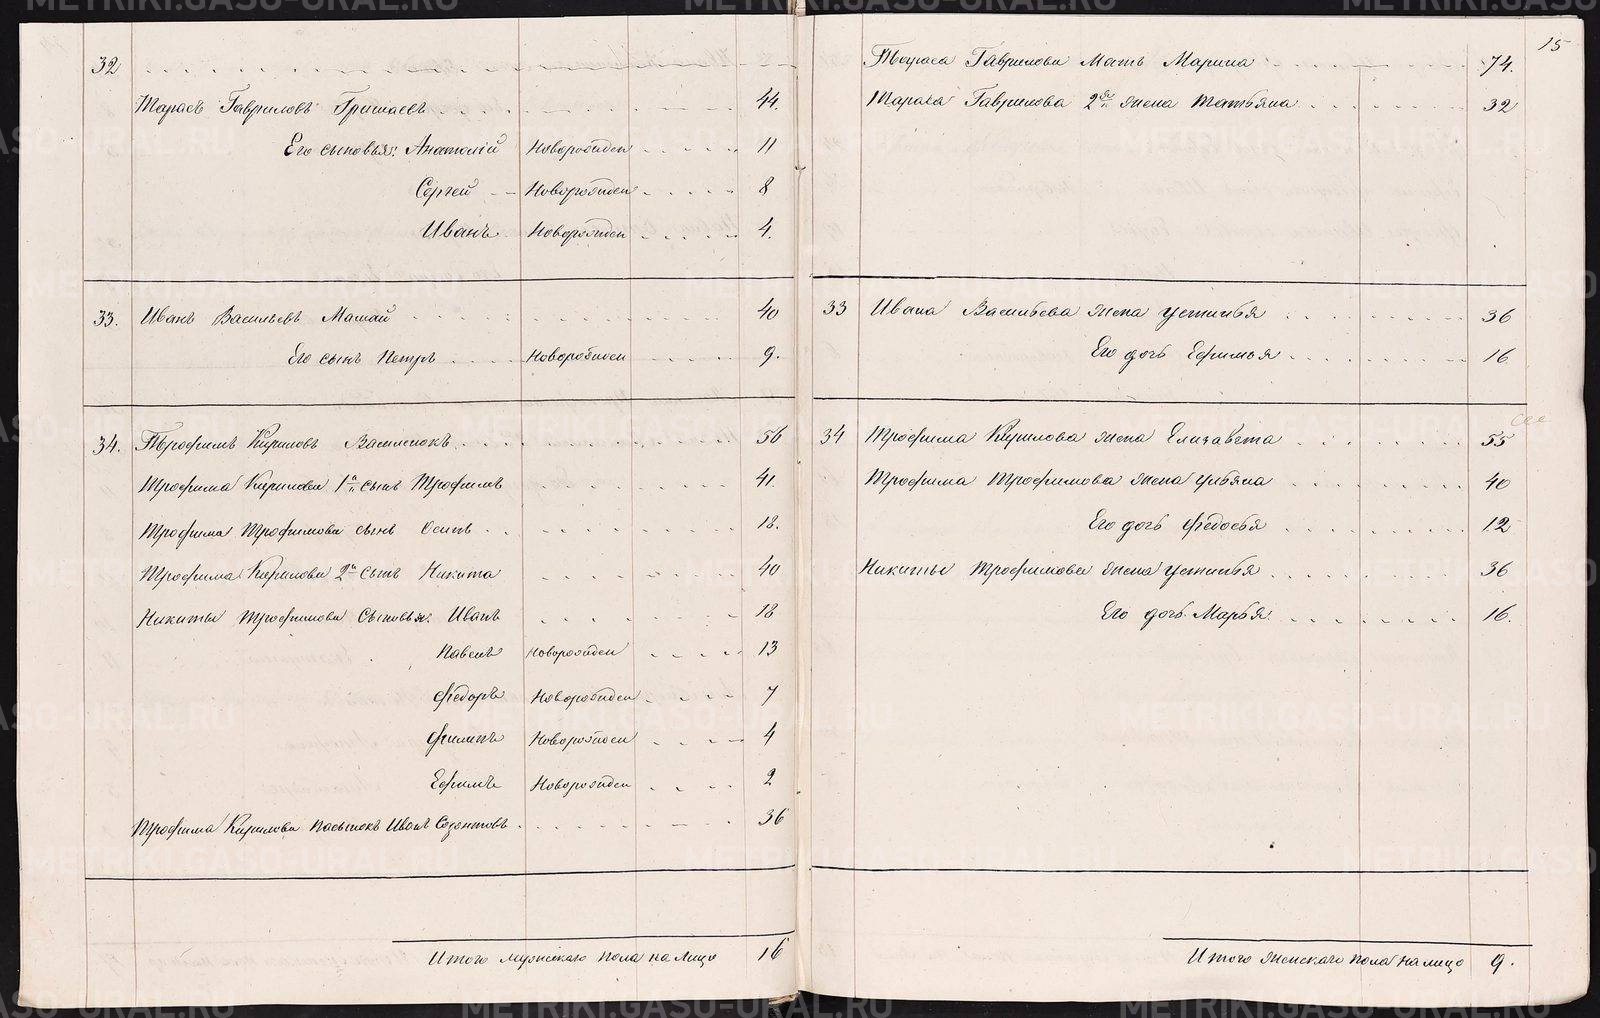 32
Тарасъ Гавриловъ Гришаевъ 44.
Его сыновья: Анатолій Новорожден 11
Сергей Новорожден 8
Иванъ Новорожден 4.
33. Иванъ Васильевъ Мамай 40
Его сынъ Петръ Новорожден 9.
34. Трофимъ Кириловъ Василенокъ 56
Трофима Кирилова 1й сынъ Трофимъ 41.
Трофима Трофимова сынъ Осипъ 18.
Трофима Кирилова 2й сынъ Никита 40
Никиты Трофимова Сыновья: Иванъ 18
Павелъ Новорожден 13
Федоръ Новорожден 7
Филипъ Новорожден 4
Ефимъ Новорожден 2
Трофима Кирилова пасынокъ Иванъ Созонтовъ 36
Итого мужскаго пола на лицо 16
15
Тараса Гаврилова Мать Марина 74.
Тараса Гаврилова 2я жена Татьяна 32
33 Ивана Васильева жена Устинья 36
Его дочь Ефимья 16
34 Трофима Кирилова жена Елизавета 55
Трофима Трофимова жена Ульяна 40
Его дочь Федосья 12
Никиты Трофимова жена Устинья 36
Его дочь Марья 16.
Итого женскаго пола на лицо 9.
METRIKI.GASO-URAL.RU